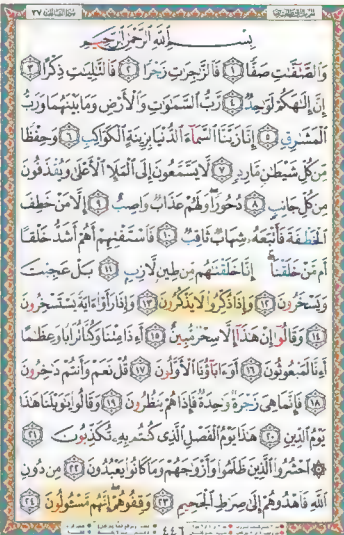 بِسْمِ اللَّهِ الرَّحْمَٰنِ الرَّحِيمِ
وَالصَّٰٓفَّٰتِ صَفًّا ١ فَالزَّٰجِرَٰتِ زَجْرًا ٢ فَالتَّٰلِيَٰتِ ذِكْرًا ٣
إِنَّ إِلَٰهَكُمْ لَوَٰحِدٌ ٤ رَّبُّ السَّمَٰوَٰتِ وَالْأَرْضِ وَمَا بَيْنَهُمَا وَرَبُّ
الْمَشَٰرِقِ ٥ إِنَّا زَيَّنَّا السَّمَآءَ الدُّنْيَا بِزِينَةٍ الْكَوَاكِبِ ٦ وَحِفْظًا
مِّن كُلِّ شَيْطَٰنٍ مَّارِدٍ ٧ لَّا يَسَّمَّعُونَ إِلَى الْمَلَإِ الْأَعْلَىٰ وَيُقْذَفُونَ
مِن كُلِّ جَانِبٍ ٨ دُحُورًا وَلَهُمْ عَذَابٌ وَاصِبٌ ٩ إِلَّا مَنْ خَطِفَ
الْخَطْفَةَ فَأَتْبَعَهُۥ شِهَابٌ ثَاقِبٌ ١٠ فَاسْتَفْتِهِمْ أَهُمْ أَشَدُّ خَلْقًا
أَم مَّنْ خَلَقْنَآ إِنَّا خَلَقْنَٰهُم مِّن طِينٍ لَّازِبٍ ١١ بَلْ عَجِبْتَ
وَيَسْخَرُونَ ١٢ وَإِذَا ذُكِّرُوا لَا يَذْكُرُونَ ١٣ وَإِذَا رَأَوْا ءَايَةً يَسْتَسْخِرُونَ
١٤ وَقَالُوٓا إِنْ هَٰذَآ إِلَّا سِحْرٌ مُّبِينٌ ١٥ أَءِذَا مِتْنَا وَكُنَّا تُرَابًا وَعِظَٰمًا
أَءِنَّا لَمَبْعُوثُونَ ١٦ أَوَءَابَآؤُنَا الْأَوَّلُونَ ١٧ قُلْ نَعَمْ وَأَنتُمْ دَٰخِرُونَ
١٨ فَإِنَّمَا هِيَ زَجْرَةٌ وَٰحِدَةٌ فَإِذَا هُمْ يَنظُرُونَ ١٩ وَقَالُوا يَٰوَيْلَنَا هَٰذَا
يَوْمُ الدِّينِ ٢٠ هَٰذَا يَوْمُ الْفَصْلِ الَّذِي كُنتُم بِهِۦ تُكَذِّبُونَ ٢١
۞ احْشُرُوا الَّذِينَ ظَلَمُوا وَأَزْوَٰجَهُمْ وَمَا كَانُوا يَعْبُدُونَ ٢٢ مِن دُونِ
اللَّهِ فَاهْدُوهُمْ إِلَىٰ صِرَٰطِ الْجَحِيمِ ٢٣ وَقِفُوهُمْ إِنَّهُم مَّسْـُٔولُونَ ٢٤
٤٤٦